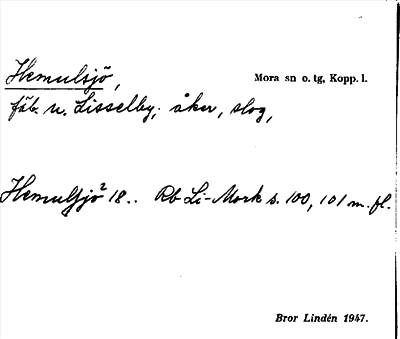 Hemulsjö,
Mora sn o. tg, Kopp. l.
fäb. u. Lisselby; åker, slog,
Hemulsjö² 18.. Rb Li-Mork s. 100, 101 m. fl.
Bror Lindén 1947.